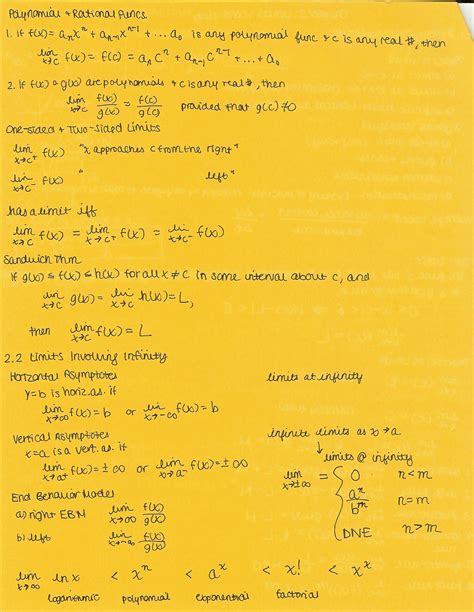 Polynomial + Rational Funcs.
1. if f(x) = aₙxⁿ + aₙ₋₁xⁿ⁻¹ + ... a₀ is any polynomial func + c is any real #, then
lim x→c f(x) = f(c) = aₙcⁿ + aₙ₋₁cⁿ⁻¹ + ... + a₀
2. If f(x) + g(x) are polynomials + c is any real #, then
lim x→c f(x)/g(x) = f(c)/g(c) provided that g(c) ≠ 0
One-sided + Two-sided Limits
lim x→c⁺ f(x) "x approaches c from the right"
lim x→c⁻ f(x) " left"
has a limit iff
lim x→c f(x) = lim x→c⁺ f(x) = lim x→c⁻ f(x)
Sandwich Thm
If g(x) ≤ f(x) ≤ h(x) for all x ≠ c in some interval about c, and
lim x→c g(x) = lim x→c h(x) = L,
then lim x→c f(x) = L
2.2 Limits Involving Infinity
Horizontal Asymptotes
y=b is horiz. as. if
lim x→∞ f(x) = b or lim x→-∞ f(x) = b
limits at infinity
Vertical Asymptotes
x=a is a vert. as. if
lim x→a⁺ f(x) = ±∞ or lim x→a⁻ f(x) = ±∞
infinite limits as x→a
limits @ infinity
lim x→±∞ = { 0 n<m
aⁿ/bᵐ n=m
DNE n>m
End Behavior Model
a) right EBM lim x→∞ f(x)/g(x)
b) left lim x→-∞ f(x)/g(x)
lim x→∞ ln x < xⁿ < aˣ < x! < xˣ
logarithmic polynomial exponential factorial